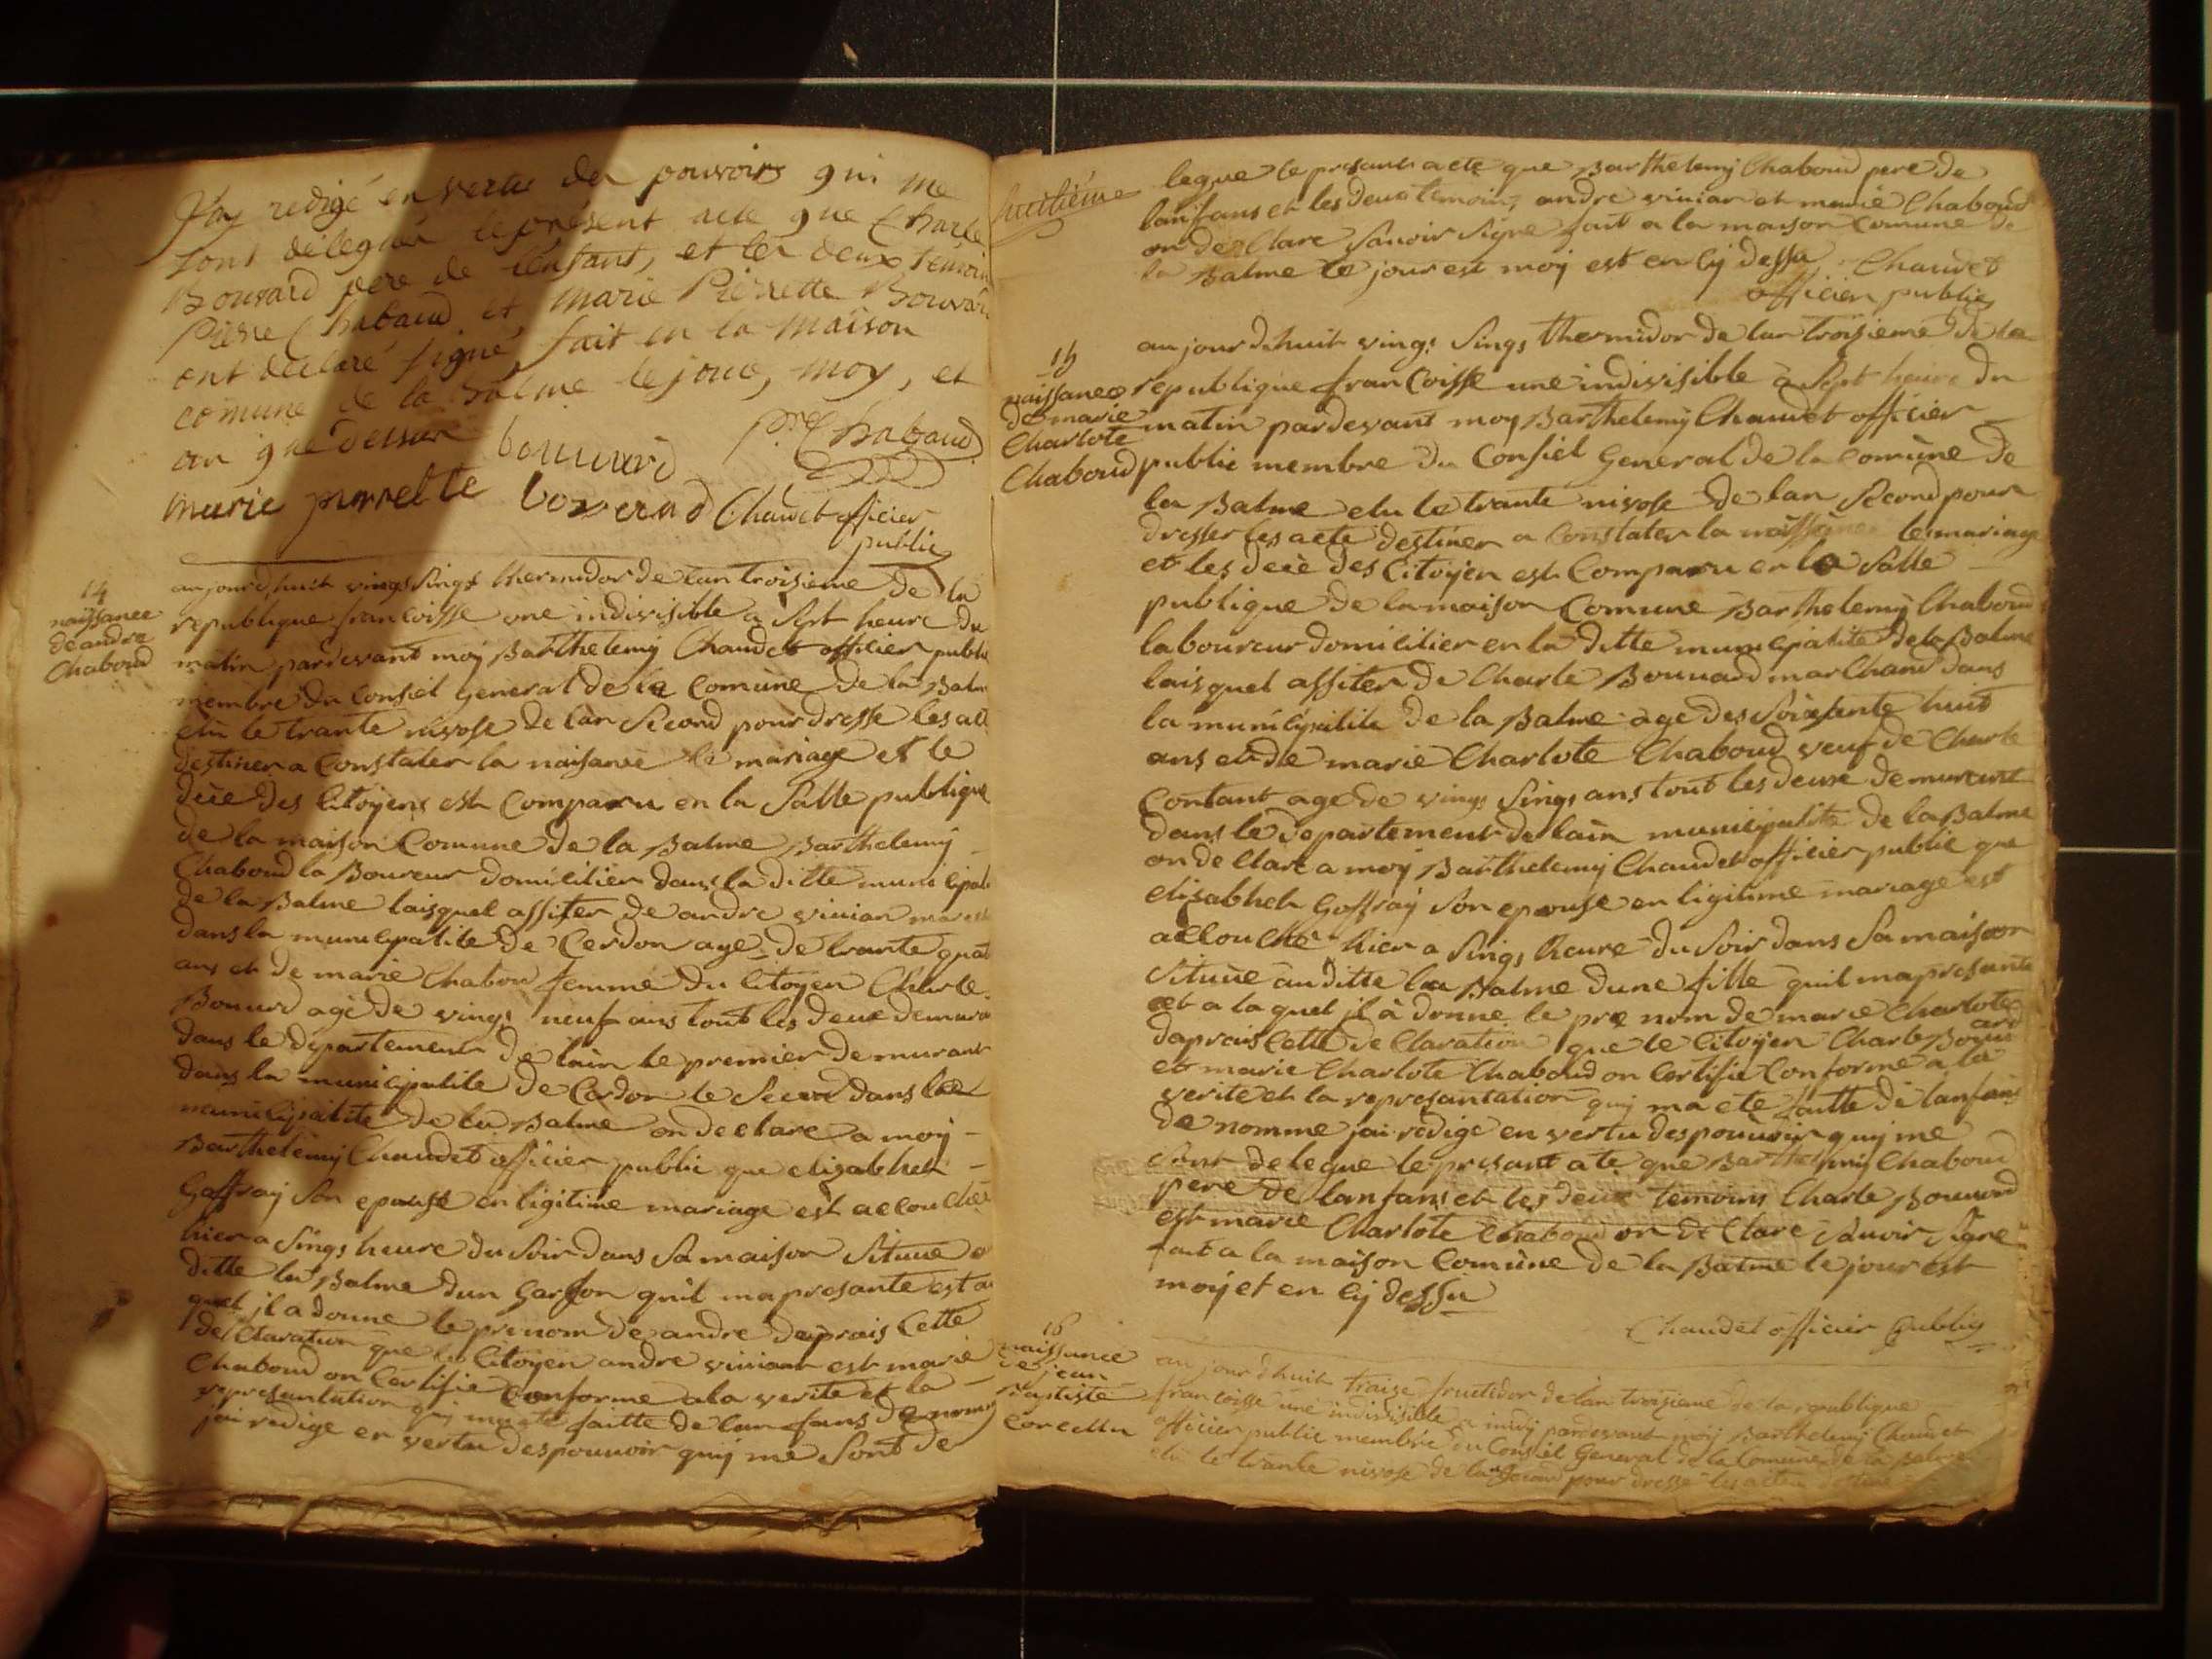 J'ay redigé en vertu des pouvoirs qui me
sont délégués le présent acte que Charle
Bouvard pere de l'enfant, et les deux témoins
Pierre Chabaud et Marie Pierrette Bouvard
ont déclaré signé, fait en la maison
comune de la Balme le jour, moy, et
an que dessus
bouuard
Pre Chabaud
marie pierrette
Chaudet officier
public
14
naissance
de andre
Chaboud
aujourdhuit vings sings thermidor de lan troisieme de la
republique francoisse une indivisible a sept heure du
matin pardevant moy Barthelemy Chaudet officier public
membre du Consiel general de la Comune de la Balme
elu le trante nivose de lan second pour dresse les acte
destiner a Constater la naisance le mariage et le
decé des Citoyens est Comparu en la Salle publique
de la maison Comune de la Balme Barthelemy
Chaboud la Boureur domicilier dans la ditte municipalite
de la Balme laisquel assiter de andre vivian
dans la municipalite de Cerdon age de trante quat
ans et de marie Chabou femme du Citoyen Charle
Bouurd age de vings neuf ans tout les deux demura
dans le departement de lain le premier demurant
dans la municipalite de Cerdon le Second dans la
municipalite de la Balme on declare a moy
Barthelemy Chaudet officier public que elizabheh
Goffray Son epouse en ligitime mariage est accouché
hier a sings heure du Soir dans Sa maison Situue a
ditte la Balme dun garson quil ma presante est au
quel jl a donne le prenom de andre daprais Cette
deClaration que les Citoyen andre viviant est marie
Chaboud on Certifie Conforme a la verite et la
represantation quy ma ete faitte de lan fans denome
jai redige en vertu des pouuoir quy me Sont de
huitiéme
legue le presant acte que Barthelemy Chaboud pere de
lanfans et les deux temoins andre vivian et marie Chaboud
on deClare Sauoir Signe fait a la maison Comune de
la Balme le jour est moy est en Cy dessu Chaudet
officier public
15
naissance
de marie
Charlote
Chaboud
aujourdhuit vings Sings thermidor de lan troisieme de la
republique franCoisse une indivisible a Sept heure du
matin pardevant moy Barthelemy Chaudet officier
public membre du Consiel General de la Comune de
la Balme elu le trante nivose de lan Second pour
dresser les acte destiner a Constater la naissance le mariage
et les decé des Citoyen est Comparu en la Salle
publique de la maison Comune Barthelemy Chaboud
laboureur domicilier en la ditte municipalite de la Balme
laisquel assiter de Charle Bouuard marChand dans
la municipalite de la Balme age des Soixsante huit
ans et de marie Charlote Chaboud veuf de Charle
Contant age de vings Sings ans tout les deux demurant
dans le departement de lain municipalite de la Balme
on deClare a moy Barthelemy Chaudet officier public que
elizabheh Goffray Son epouse en ligitime mariage est
accouche hier a Sings heure du Soir dans Sa maison
Situue auditte la Balme dune fille quil ma presante
et a laquel jl à donne le pre nom de marie Charlote
daprais Cette deClaration que le Citoyen Charle Bouuard
et marie Charlote Chaboud on Certifie Conforme a la
verite et la represantation quy ma ete faitte de lanfans
de nomme jai redige en vertu des pouuoir quy me
Sont de legue le presant acte que Barthelemy Chaboud
pere de lanfans et les deux temoins Charle Bouuard
est marie Charlote Chaboud on de Clare Sauoir Signe
fait a la maison Comune de la Balme le jour est
moy et en Cy dessu
Chaudet officier public
16
naissance
de jean
Baptiste
Corcellu
aujourdhuit traize fructidor de lan troisieme de la republique
francoisse une indivisible a midy pardevant moy Barthelemy Chaudet
officier public membre du Consiel General de la Comune de la Balme
elu le trante nivose de lan Second pour dresse les acte